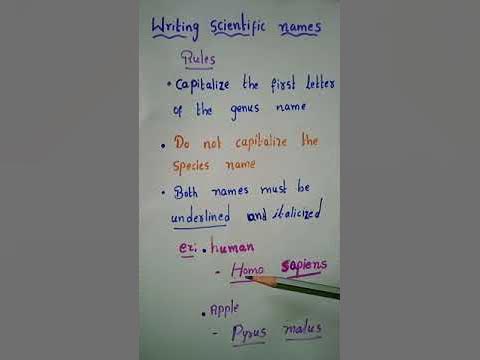 Writing scientific names
Rules
• Capitalize the first letter
of the genus name
• Do not capitalize the
species name
• Both names must be
underlined and italicized
ex: • human
- Homo sapiens
• Apple
- Pyrus malus